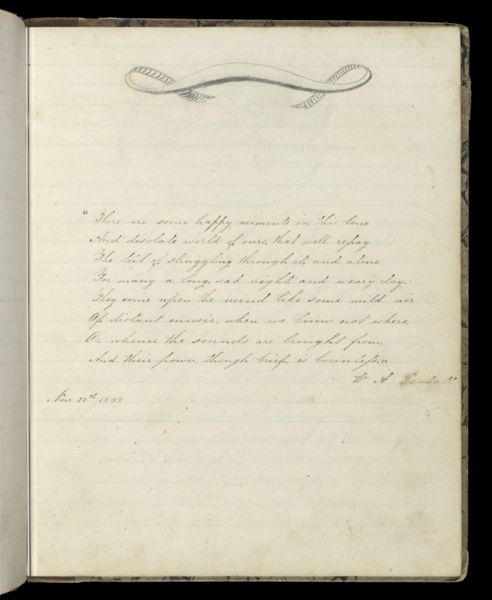 "There are some happy moments in this lone
And desolate world of ours, that well repay
The toil of struggling through it, and alone
For many a long, sad night and weary day.
They come upon the mind like some wild air
Of distant music, when we know not where,
Or whence the sounds are brought from,
And their power, though brief, is boundless."
W A
Nov.